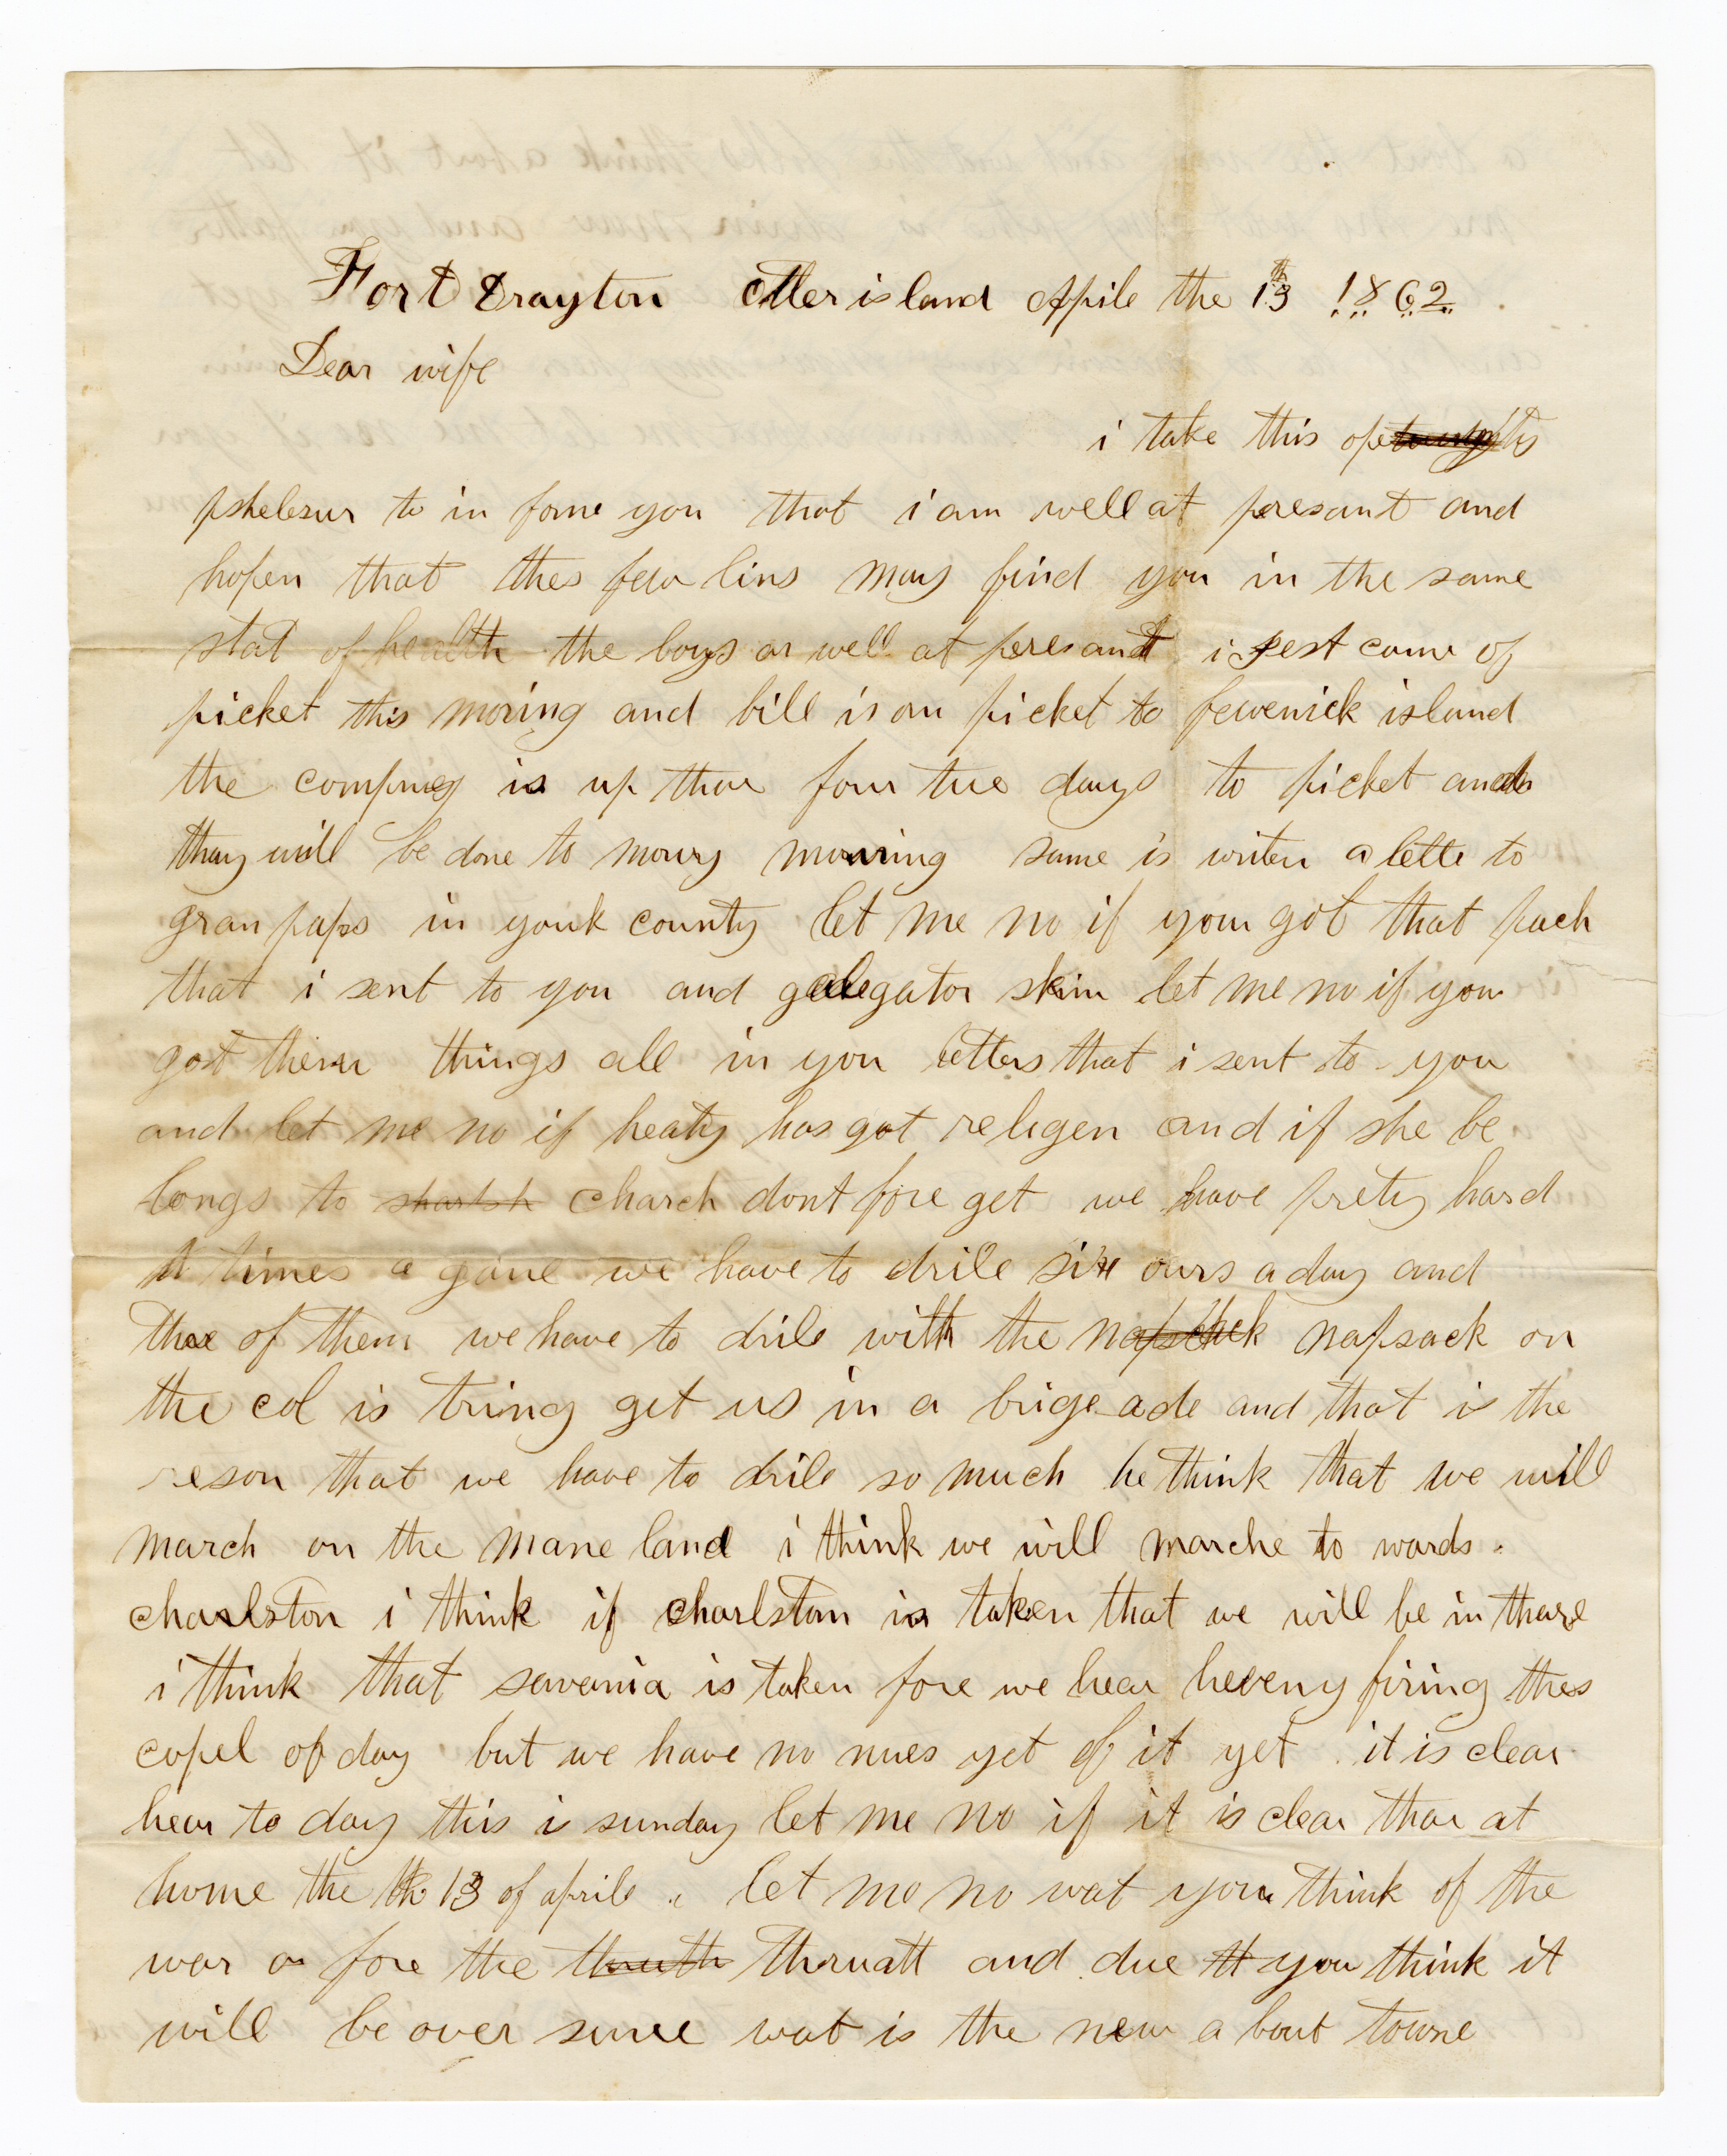 Fort Drayton otter island Apile the 13th 1862
Dear wife
i take this ope
pshelesur to in forme you that i am well at presant and
hopen that thes few lins may find you in the same
stat of health the boys ar well at presant i jest came of
picket this moring and bill is on picket to fewenick island
the compney is up thar four tue days to picket and
thay will be done to mowry mowring same is writen a lette to
gran paps in yourk county let me no if you got that pach
that i sent to you and galegator skin let me no if you
got them things all in you letters that i sent to you
and let me no if heaty has got religen and if she be
longs to charch dont fore get we have prety hard
times a gane we have to drile six ours a day and
thre of them we have to drile with the napschek napsack on
the col is tring get us in a brige ade and that is the
reson that we have to drile so much he think that we will
march on the mane land i think we will marche to wards
charlston i think if charlston is taken that we will be in thare
i think that savania is taken fore we hear heveny firing thes
copel of day but we have no nues yet of it yet it is clear
hear to day this is sunday let me no if it is clear thar at
home the th 13 of aprile let me no wat you think of the
war or fore the thruth thruatt and due tt you think it
will be over sune wat is the new a bout towne